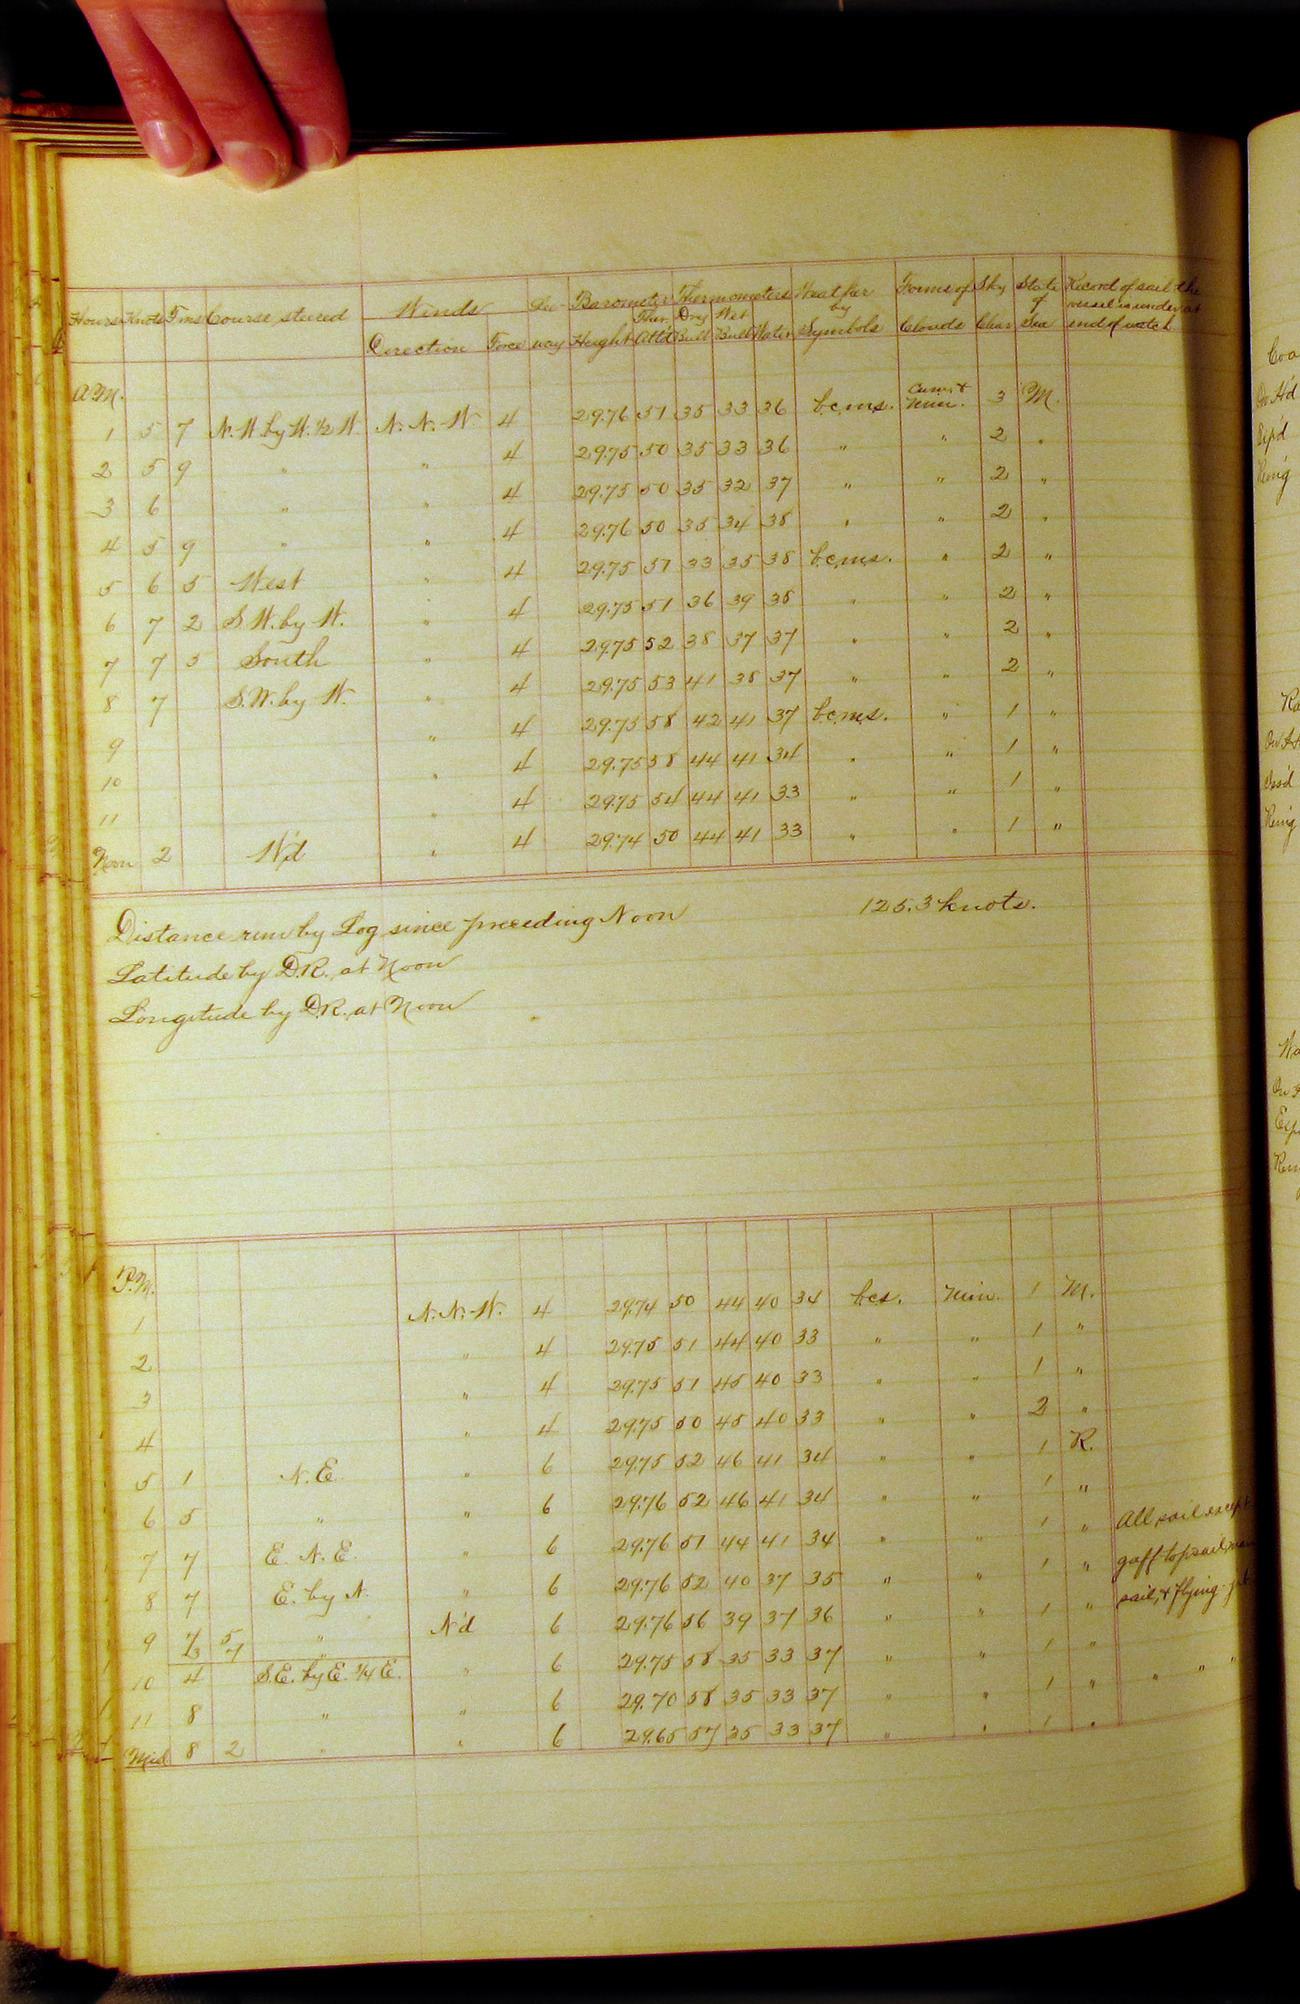 Hours Knots Fms Course steered Winds Direction Force Lee way Barometer Height Ther. Att'd Thermometers Dry Bulb Wet Bulb Water Weather by Symbols Forms of Clouds Sky Clear State of Sea Record of sail the vessel is under at end of watch
A.M.
1 5 7 N.W. by W. ½ W. N.N.W. 4 29.76 51 35 33 36 b.c.m.s. Cum. & Nim. 3 M.
2 5 9 " " 4 29.75 50 35 33 36 " " 2 "
3 6 " " 4 29.75 50 35 32 37 " " 2 "
4 5 9 " " 4 29.76 50 35 34 38 " " 2 "
5 6 5 West " 4 29.75 51 33 35 38 b.c.m.s. " 2 "
6 7 2 S.W. by W. " 4 29.75 51 36 39 38 " " 2 "
7 7 5 South " 4 29.75 52 38 37 37 " " 2 "
8 7 S.W. by W. " 4 29.75 53 41 38 37 " " 2 "
9 " 4 29.75 58 42 41 37 b.c.m.s. " 1 "
10 " 4 29.75 58 44 41 34 " " 1 "
11 " 4 29.75 54 44 41 33 " " 1 "
Noon 2 W'd " 4 29.74 50 44 41 33 " " 1 "
Distance run by Log since preceding Noon 125.3 knots.
Latitude by D.R. at Noon
Longitude by D.R. at Noon
P.M.
1 N.N.W. 4 29.74 50 44 40 34 b.c.s. Nim. 1 M.
2 " 4 29.75 51 44 40 33 " " 1 "
3 " 4 29.75 51 45 40 33 " " 1 "
4 " 4 29.75 50 45 40 33 " " 2 "
5 1 N.E. " 6 29.75 52 46 41 34 " " 1 R.
6 5 " " 6 29.76 52 46 41 34 " " 1 "
7 7 E.N.E. " 6 29.76 51 44 41 34 " " 1 " All sail except
8 7 E. by N. " 6 29.76 52 40 37 35 " " 1 " gaff topsail,
9 7 5 " N'd 6 29.76 56 39 37 36 " " 1 " sail, & flying jib
3 7
10 4 S.E. by E. ¼ E. " 6 29.75 58 35 33 37 " " 1 "
11 8 " " 6 29.70 58 35 33 37 " " 1 " " " "
Mid 8 2 " " 6 29.65 57 35 33 37 " " 1 "